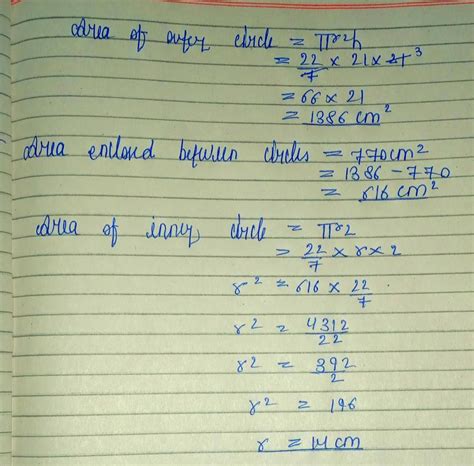 Area of outer circle = πr2h
= 22/7 × 21 × 21 3
= 66 × 21
= 1386 cm²
Area enclosed between circles = 770cm²
= 1386 - 770
= 616 cm²
Area of inner circle = πr2
= 22/7 × r × 2
r² = 616 × 22/7
r² = 4312/22
r2 = 392/2
r² = 196
r = 14 cm